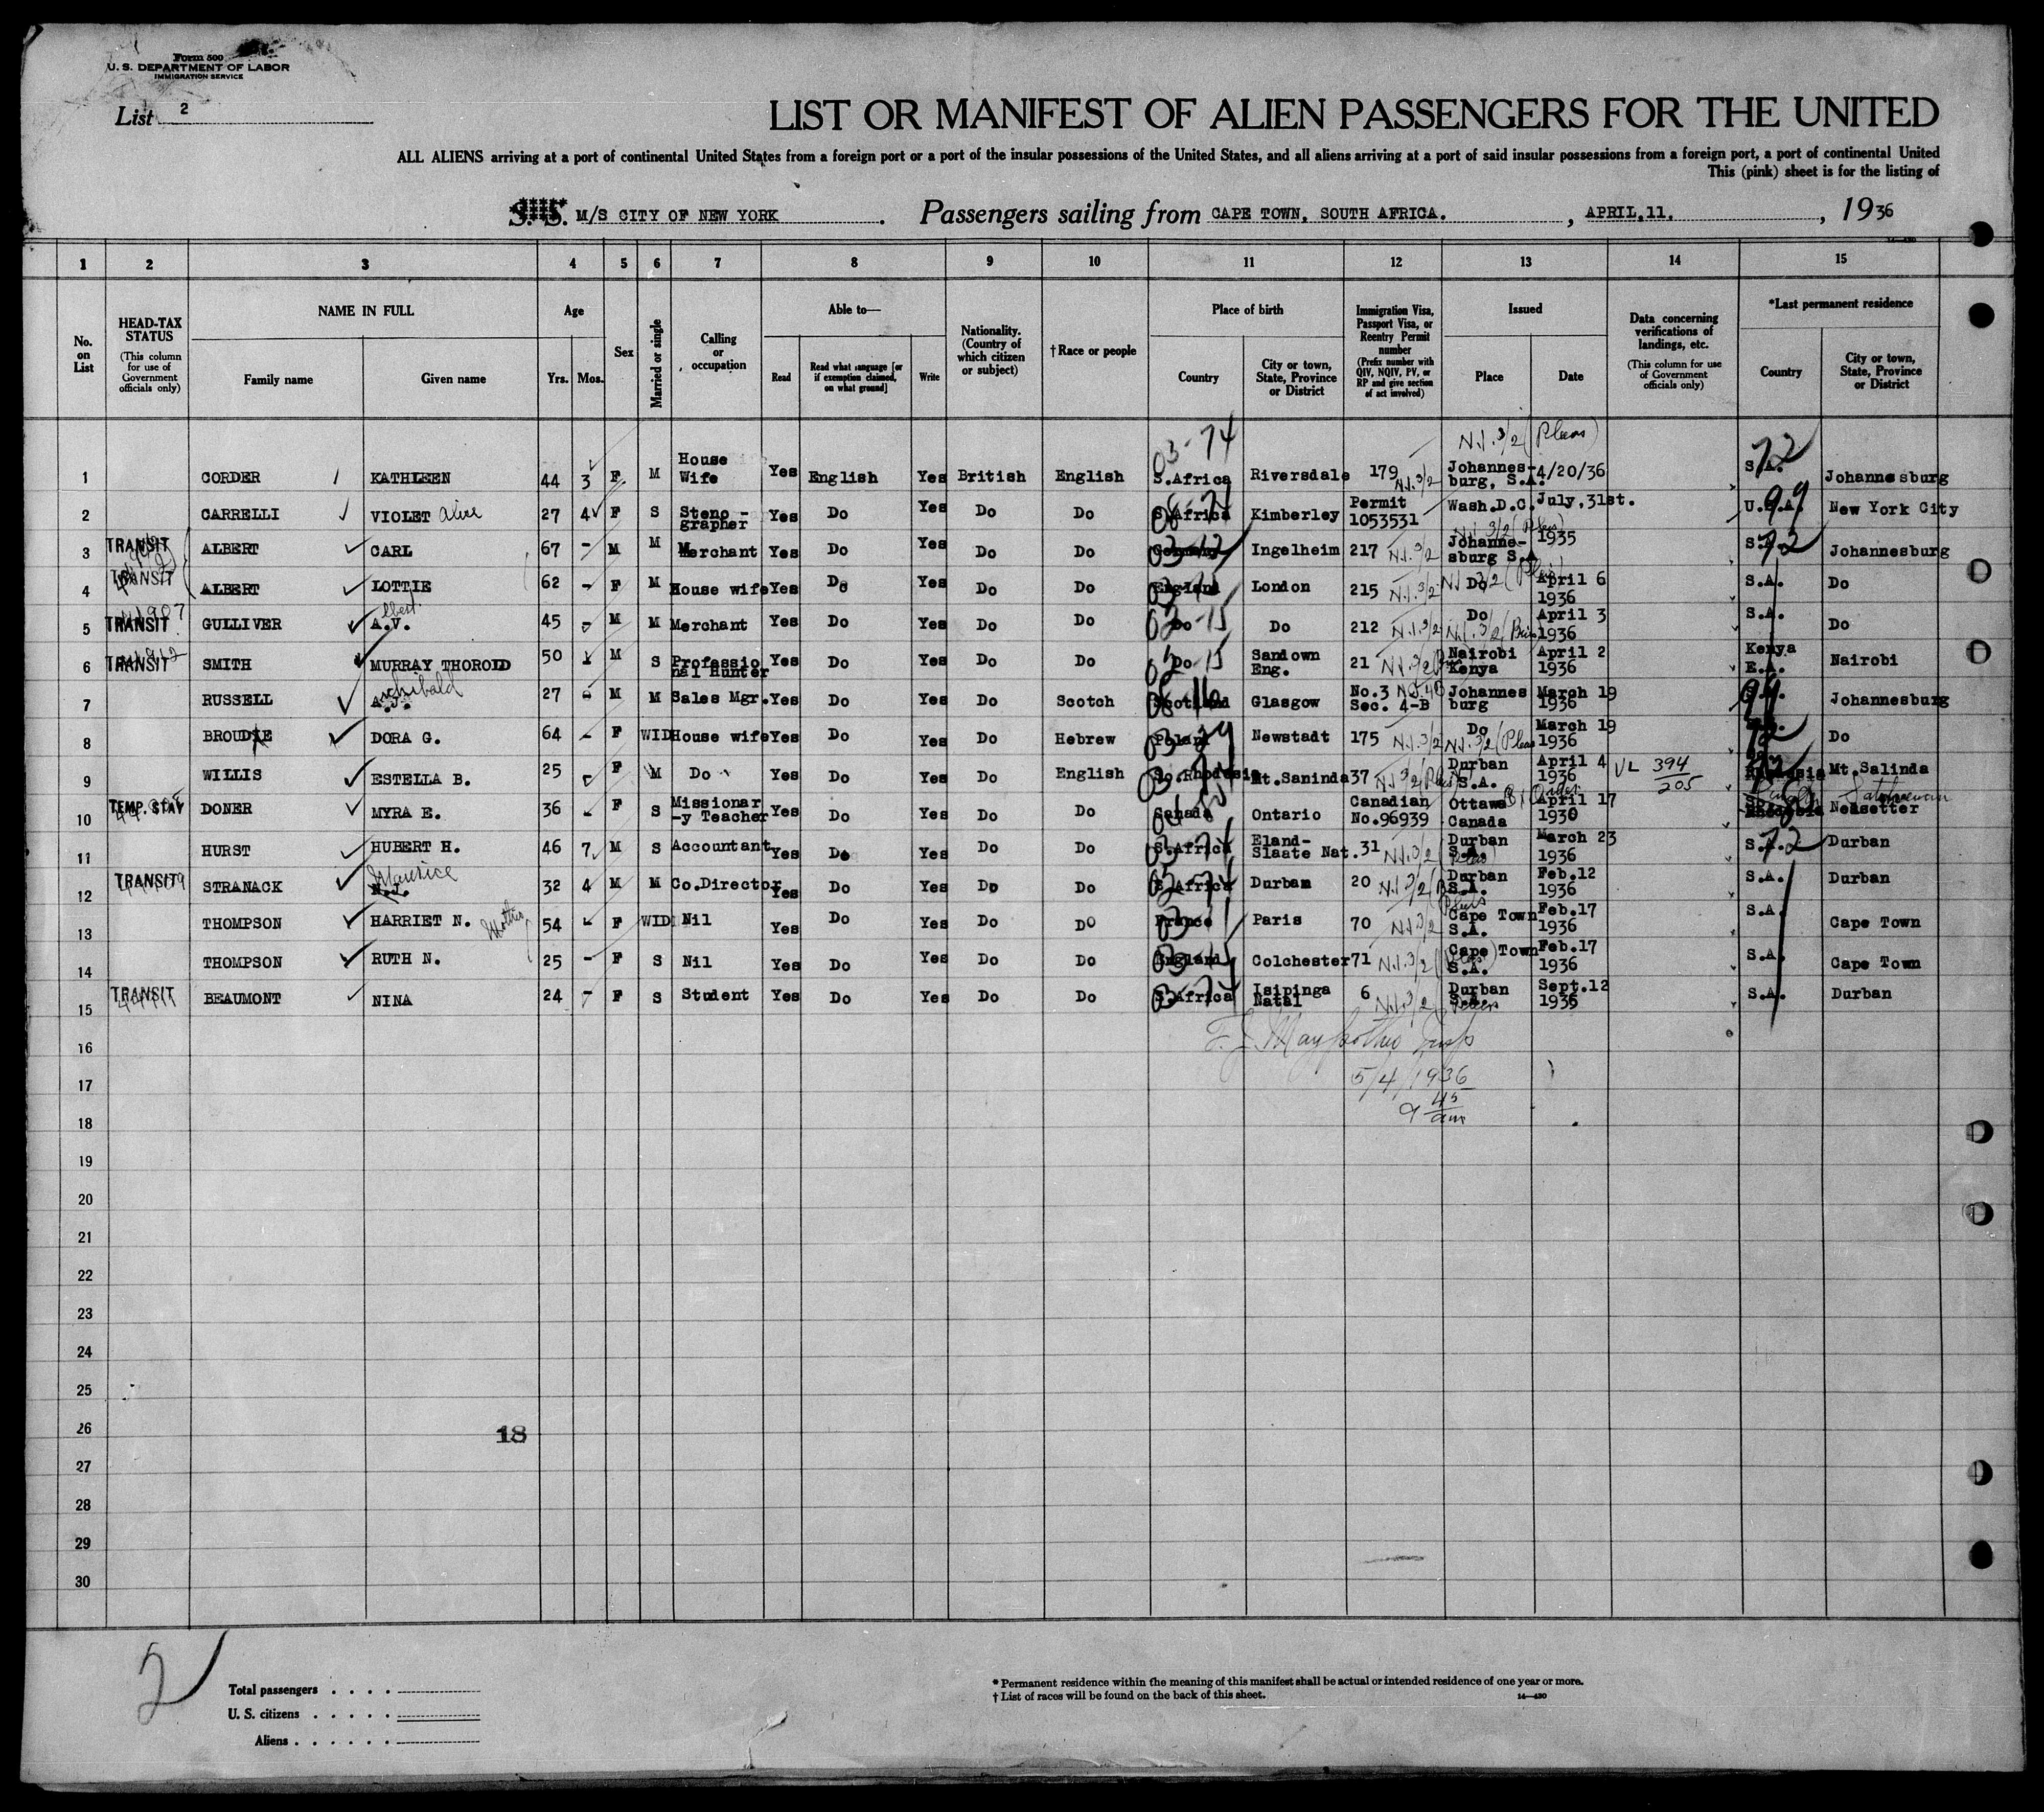 Form 500
U. S. DEPARTMENT OF LABOR
IMMIGRATION SERVICE
List 2
LIST OR MANIFEST OF ALIEN PASSENGERS FOR THE UNITED
ALL ALIENS arriving at a port of continental United States from a foreign port or a port of the insular possessions of the United States, and all aliens arriving at a port of said insular possessions from a foreign port, a port of continental United
This (pink) sheet is for the listing of
S. S. M/S CITY OF NEW YORK . Passengers sailing from CAPE TOWN, SOUTH AFRICA. , APRIL,11. , 1936
1 2 3 4 5 6 7 8 9 10 11 12 13 14 15
No. on List
HEAD-TAX STATUS (This column for use of Government officials only)
NAME IN FULL Family name Given name
Age Yrs. Mos.
Sex
Married or single
Calling or occupation
Able to— Read Read what language [or if exemption claimed, on what ground] Write
Nationality. (Country of which citizen or subject)
†Race or people
Place of birth Country City or town, State, Province or District
Immigration Visa, Passport Visa, or Reentry Permit number (Prefix number with QIV, NQIV, PV, or RP and give section of act involved)
Issued Place Date
Data concerning verifications of landings, etc. (This column for use of Government officials only)
*Last permanent residence Country City or town, State, Province or District
03-74 N.I. 3/2 (Pleas)
1 CORDER KATHLEEN 44 3 F M House Wife Yes English Yes British English S.Africa Riversdale 179 N.I.3/2 Johannes-burg, S.A. 4/20/36 S.A. 72 Johannesburg
2 CARRELLI VIOLET Alice 27 4 F S Steno-grapher Yes Do Yes Do Do S.Africa Kimberley Permit 1053531 Wash.D.C. July,31st. 1935 U.S.A. 99 New York City
3 TRANSIT ALBERT CARL 67 - M M Merchant Yes Do Yes Do Do Germany Ingelheim 217 N.I.3/2 Johanne-sburg S.A. S.A. 72 Johannesburg
4 TRANSIT ALBERT LOTTIE 62 - F M House wife Yes Do Yes Do Do England London 215 N.I.3/2 Do April 6 1936 S.A. Do
5 TRANSIT GULLIVER A.V. 45 - M M Merchant Yes Do Yes Do Do Do Do 212 N.I.3/2 Do April 3 1936 S.A. Do
6 TRANSIT SMITH MURRAY THOROLD 50 M S Professio nal Hunter Yes Do Yes Do Do Do Sandown Eng. 21 N.I.3/2 Nairobi Kenya April 2 1936 Kenya E.A. Nairobi
7 RUSSELL A.J. Archibald 27 - M M Sales Mgr. Yes Do Yes Do Scotch Scotland Glasgow No.3 Sec. 4-B Johannes burg March 19 1936 Johannesburg
8 BROUDIE DORA G. 64 - F WID House wife Yes Do Yes Do Hebrew Poland Newstadt 175 N.I.3/2 Do March 19 1936 Do
9 WILLIS ESTELLA B. 25 F M Do Yes Do Yes Do English So.Rhodesia Mt.Saninda 37 N.I.3/2 Durban S.A. April 4 1936 VL 394/205 Rhodesia Mt.Salinda
10 TEMP. STAY DONER MYRA E. 36 - F S Missionar -y Teacher Yes Do Yes Do Do Canada Ontario Canadian No.96939 Ottawa Canada April 17 1930 Rhodesia
11 HURST HUBERT H. 46 7 M S Accountant Yes Do Yes Do Do S.Africa Eland-Slaate Nat. 31 N.I.3/2 Durban S.A. March 23 1936 S.A. 72 Durban
12 TRANSIT STRANACK Maurice 32 4 M M Co.Director Yes Do Yes Do Do S.Africa Durban 20 N.I.3/2 Durban S.A. Feb.12 1936 S.A. Durban
13 THOMPSON HARRIET N. Mother 54 - F WID Nil Yes Do Yes Do Do France Paris 70 N.I.3/2 Cape Town S.A. Feb.17 1936 S.A. Cape Town
14 THOMPSON RUTH N. 25 - F S Nil Yes Do Yes Do Do England Colchester 71 N.I.3/2 Cape Town S.A. Feb.17 1936 S.A. Cape Town
15 TRANSIT BEAUMONT NINA 24 - F S Student Yes Do Yes Do Do S.Africa Isipinga Natal 6 N.I.3/2 Durban S.A. Sept.12 S.A. Durban
16
17 5/4/1936
18 9 45 am
19
20
21
22
23
24
25
26 18
27
28
29
30
2
Total passengers . . . .
U. S. citizens . . . . .
Aliens . . . . . .
* Permanent residence within the meaning of this manifest shall be actual or intended residence of one year or more.
† List of races will be found on the back of this sheet. 14—430